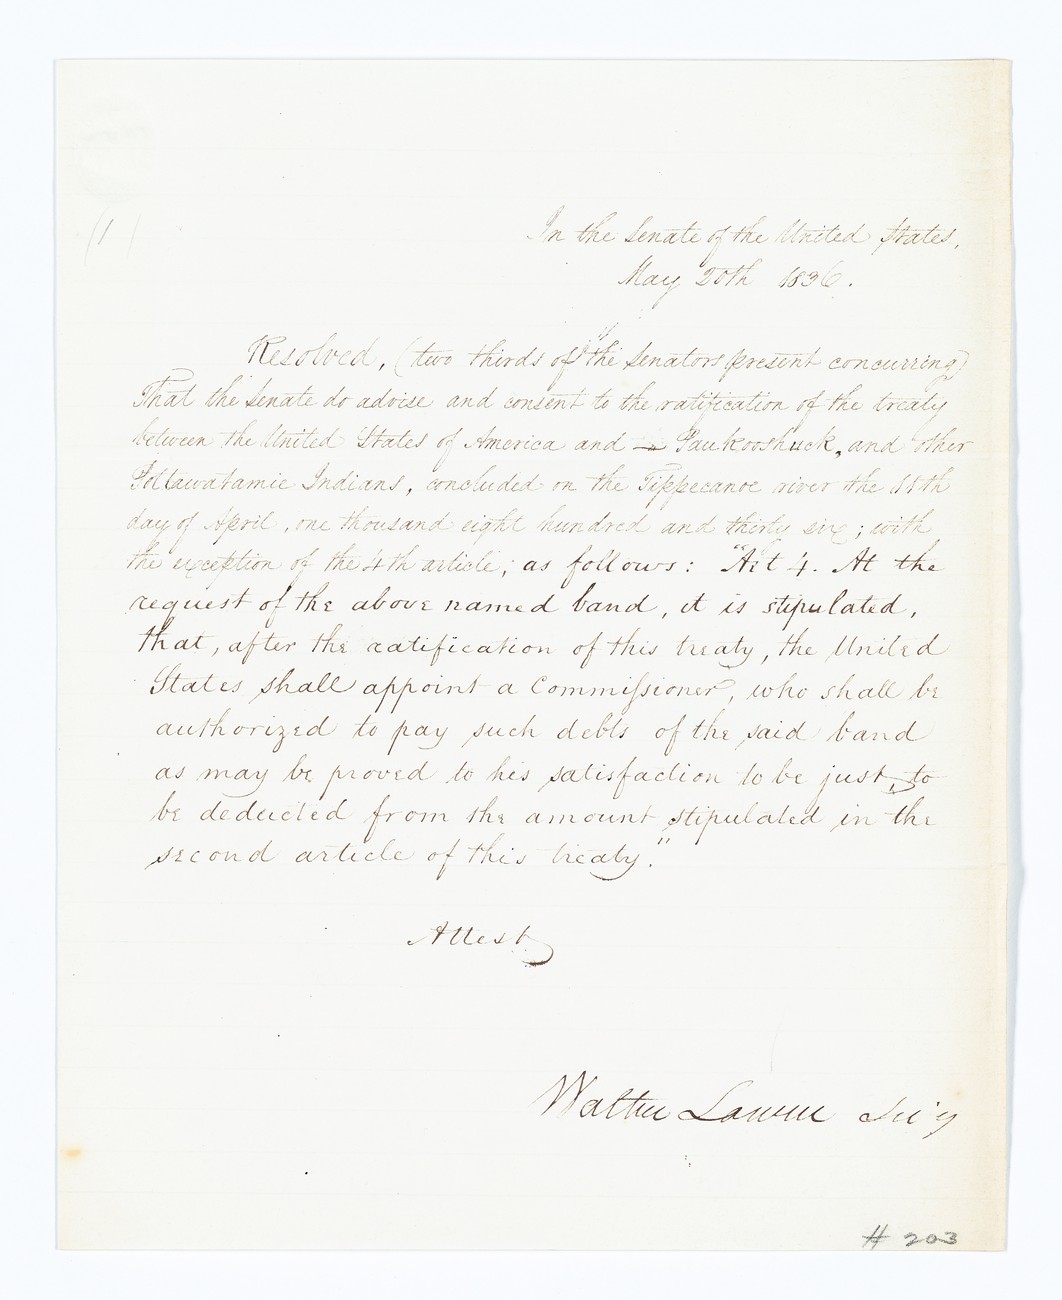 (1)
In the Senate of the United States,
May 20th 1836.
Resolved, (two thirds of the Senators present concurring)
That the Senate do advise and consent to the ratification of the treaty
between the United States of America and Paukooshuck, and other
Pottawatamie Indians, concluded on the Tippecanoe river the 11th
day of April, one thousand eight hundred and thirty six; with
the exception of the 4th article; as follows: "Art 4. At the
request of the above named band, it is stipulated,
that, after the ratification of this treaty, the United
States shall appoint a Commissioner, who shall be
authorized to pay such debts of the said band
as may be proved to his satisfaction to be just, to
be deducted from the amount stipulated in the
second article of this treaty."
Attest
Walter Lowrie Sec'y
# 203